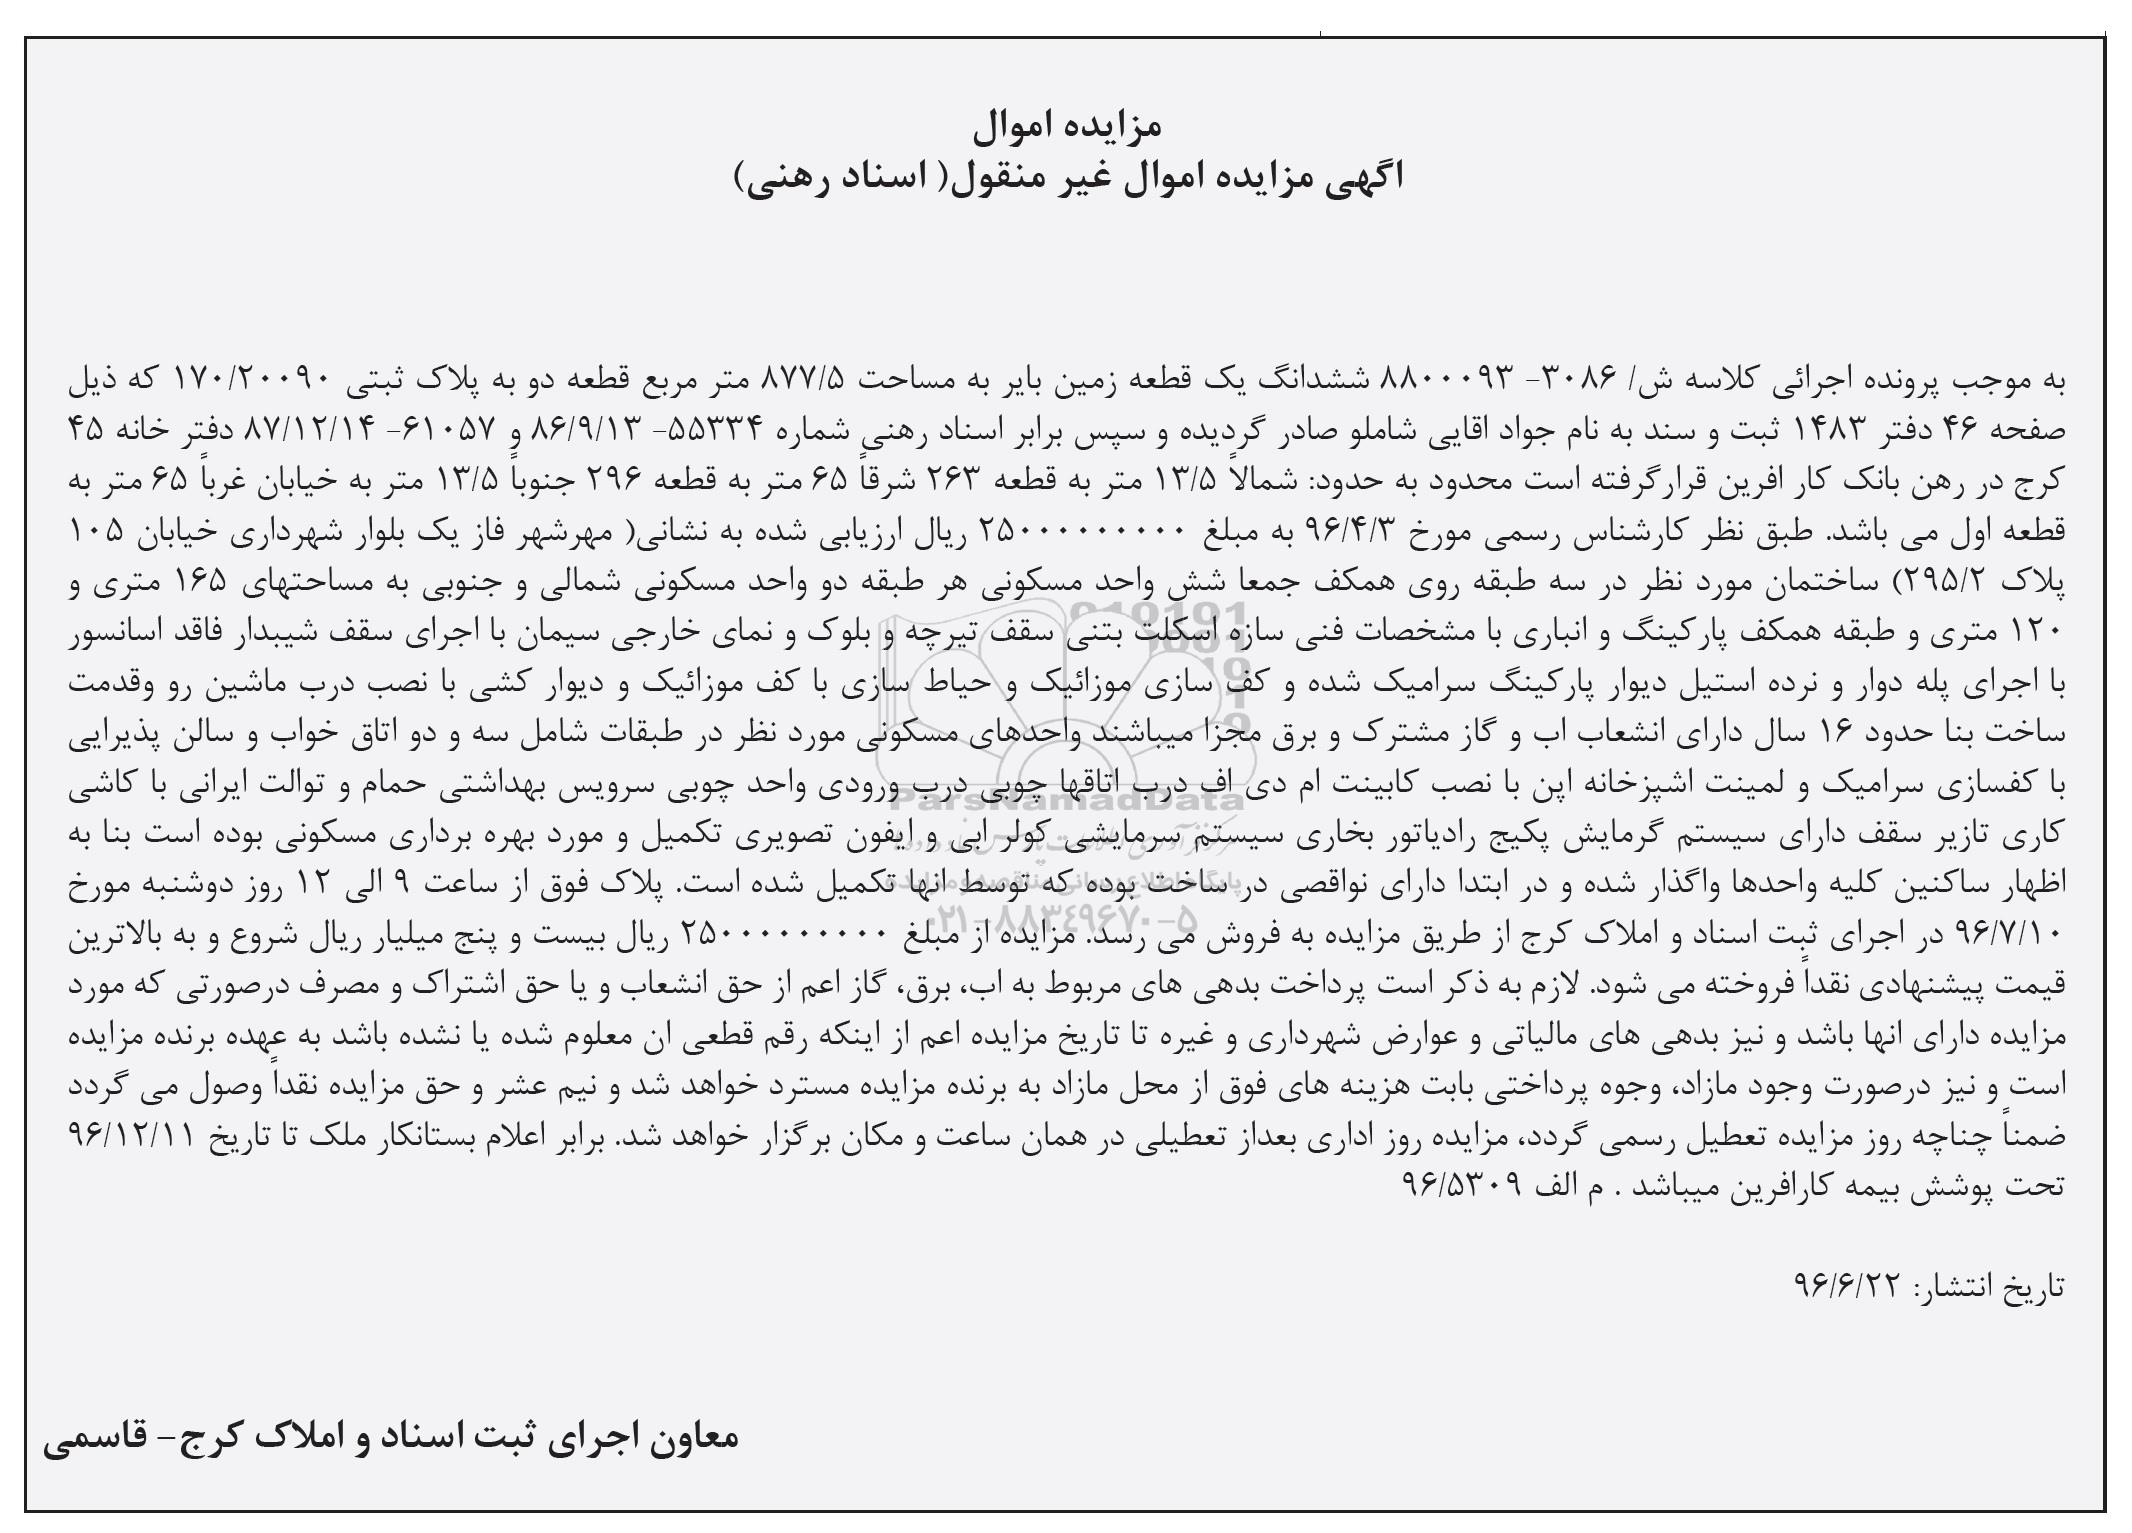 مزایده اموال
اگهی مزایده اموال غیر منقول( اسناد رهنی)
به موجب پرونده اجرائی کلاسه ش/ ۳۰۸۶- ۸۸۰۰۰۹۳ ششدانگ یک قطعه زمین بایر به مساحت ۸۷۷/۵ متر مربع قطعه دو به پلاک ثبتی ۱۷۰/۲۰۰۹۰ که ذیل
صفحه ۴۶ دفتر ۱۴۸۳ ثبت و سند به نام جواد اقایی شاملو صادر گردیده و سپس برابر اسناد رهنی شماره ۵۵۳۳۴- ۸۶/۹/۱۳ و ۶۱۰۵۷- ۸۷/۱۲/۱۴ دفتر خانه ۴۵
کرج در رهن بانک کار افرین قرارگرفته است محدود به حدود: شمالاً ۱۳/۵ متر به قطعه ۲۶۳ شرقاً ۶۵ متر به قطعه ۲۹۶ جنوباً ۱۳/۵ متر به خیابان غرباً ۶۵ متر به
قطعه اول می باشد. طبق نظر کارشناس رسمی مورخ ۹۶/۴/۳ به مبلغ ۲۵۰۰۰۰۰۰۰۰۰ ریال ارزیابی شده به نشانی( مهرشهر فاز یک بلوار شهرداری خیابان ۱۰۵
پلاک ۲۹۵/۲) ساختمان مورد نظر در سه طبقه روی همکف جمعا شش واحد مسکونی هر طبقه دو واحد مسکونی شمالی و جنوبی به مساحتهای ۱۶۵ متری و
۱۲۰ متری و طبقه همکف پارکینگ و انباری با مشخصات فنی سازه اسکلت بتنی سقف تیرچه و بلوک و نمای خارجی سیمان با اجرای سقف شیبدار فاقد اسانسور
با اجرای پله دوار و نرده استیل دیوار پارکینگ سرامیک شده و کف سازی موزائیک و حیاط سازی با کف موزائیک و دیوار کشی با نصب درب ماشین رو وقدمت
ساخت بنا حدود ۱۶ سال دارای انشعاب اب و گاز مشترک و برق مجزا میباشند واحدهای مسکونی مورد نظر در طبقات شامل سه و دو اتاق خواب و سالن پذیرایی
با کفسازی سرامیک و لمینت اشپزخانه اپن با نصب کابینت ام دی اف درب اتاقها چوبی درب ورودی واحد چوبی سرویس بهداشتی حمام و توالت ایرانی با کاشی
کاری تازیر سقف دارای سیستم گرمایش پکیج رادیاتور بخاری سیستم سرمایشی کولر ابی و ایفون تصویری تکمیل و مورد بهره برداری مسکونی بوده است بنا به
اظهار ساکنین کلیه واحدها واگذار شده و در ابتدا دارای نواقصی در ساخت بوده که توسط انها تکمیل شده است. پلاک فوق از ساعت ۹ الی ۱۲ روز دوشنبه مورخ
۹۶/۷/۱۰ در اجرای ثبت اسناد و املاک کرج از طریق مزایده به فروش می رسد. مزایده از مبلغ ۲۵۰۰۰۰۰۰۰۰۰ ریال بیست و پنج میلیار ریال شروع و به بالاترین
قیمت پیشنهادی نقداً فروخته می شود. لازم به ذکر است پرداخت بدهی های مربوط به اب، برق، گاز اعم از حق انشعاب و یا حق اشتراک و مصرف درصورتی که مورد
مزایده دارای انها باشد و نیز بدهی های مالیاتی و عوارض شهرداری و غیره تا تاریخ مزایده اعم از اینکه رقم قطعی ان معلوم شده یا نشده باشد به عهده برنده مزایده
است و نیز درصورت وجود مازاد، وجوه پرداختی بابت هزینه های فوق از محل مازاد به برنده مزایده مسترد خواهد شد و نیم عشر و حق مزایده نقداً وصول می گردد
ضمناً چناچه روز مزایده تعطیل رسمی گردد، مزایده روز اداری بعداز تعطیلی در همان ساعت و مکان برگزار خواهد شد. برابر اعلام بستانکار ملک تا تاریخ ۹۶/۱۲/۱۱
تحت پوشش بیمه کارافرین میباشد . م الف ۹۶/۵۳۰۹
تاریخ انتشار: ۹۶/۶/۲۲
معاون اجرای ثبت اسناد و املاک کرج- قاسمی
ParsNamadData
پایگاه اطلاع رسانی مناقصه و مزایده
۰۲۱-۸۸۳۴۹۶۷۰-۵